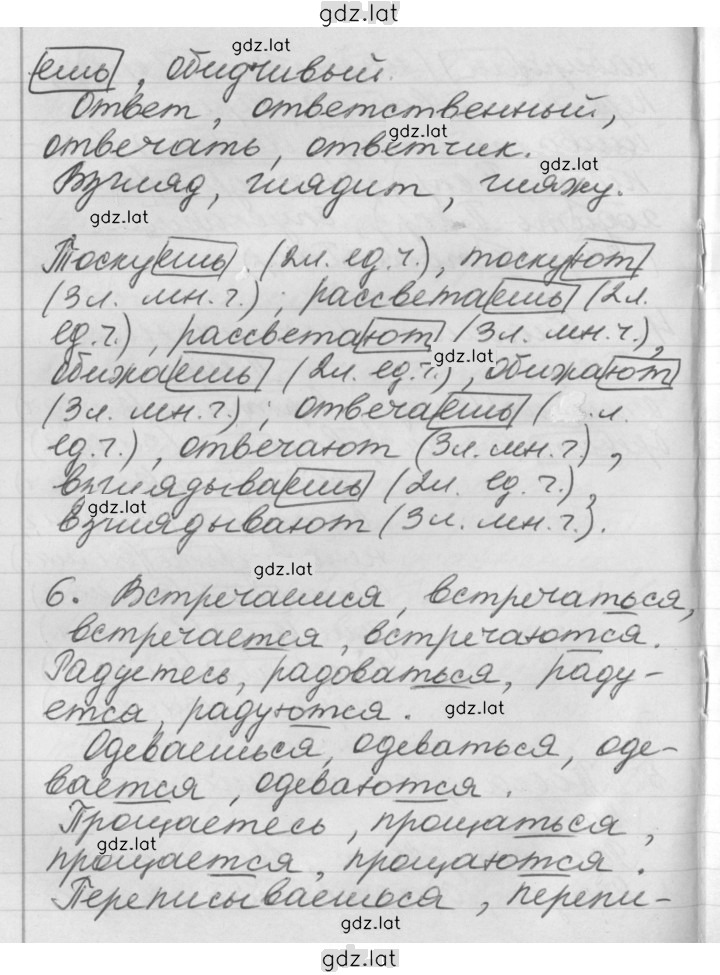 gdz.lat
gdz.lat
ешь, обидчивый.
Ответ, ответственный,
gdz.lat
отвечать, ответчик.
gdz.lat
Взгляд, глядит, гляжу.
gdz.lat
Тоскуешь (2л. ед.ч.), тоскуют
(3л. мн.ч.); рассветаешь (2л.
ед.ч.), рассветают (3л. мн.ч.),
gdz.lat
обижаешь (2л. ед.ч.), обижают
(3л. мн.ч.); отвечаешь ( .л.
ед.ч.), отвечают (3л. мн.ч.),
взглядываешь (2л. ед.ч.),
gdz.lat
взглядывают (3л. мн.ч.).
gdz.lat
6. Встречаемся, встречаться,
встречается, встречаются.
Радуетесь, радоваться, раду-
ется, радуются.
gdz.lat
Одеваешься, одеваться, оде-
вается, одеваются.
Прощаетесь, прощаться,
gdz.lat
прощается, прощаются.
Переписываешься, перепи-
gdz.lat
gdz.lat